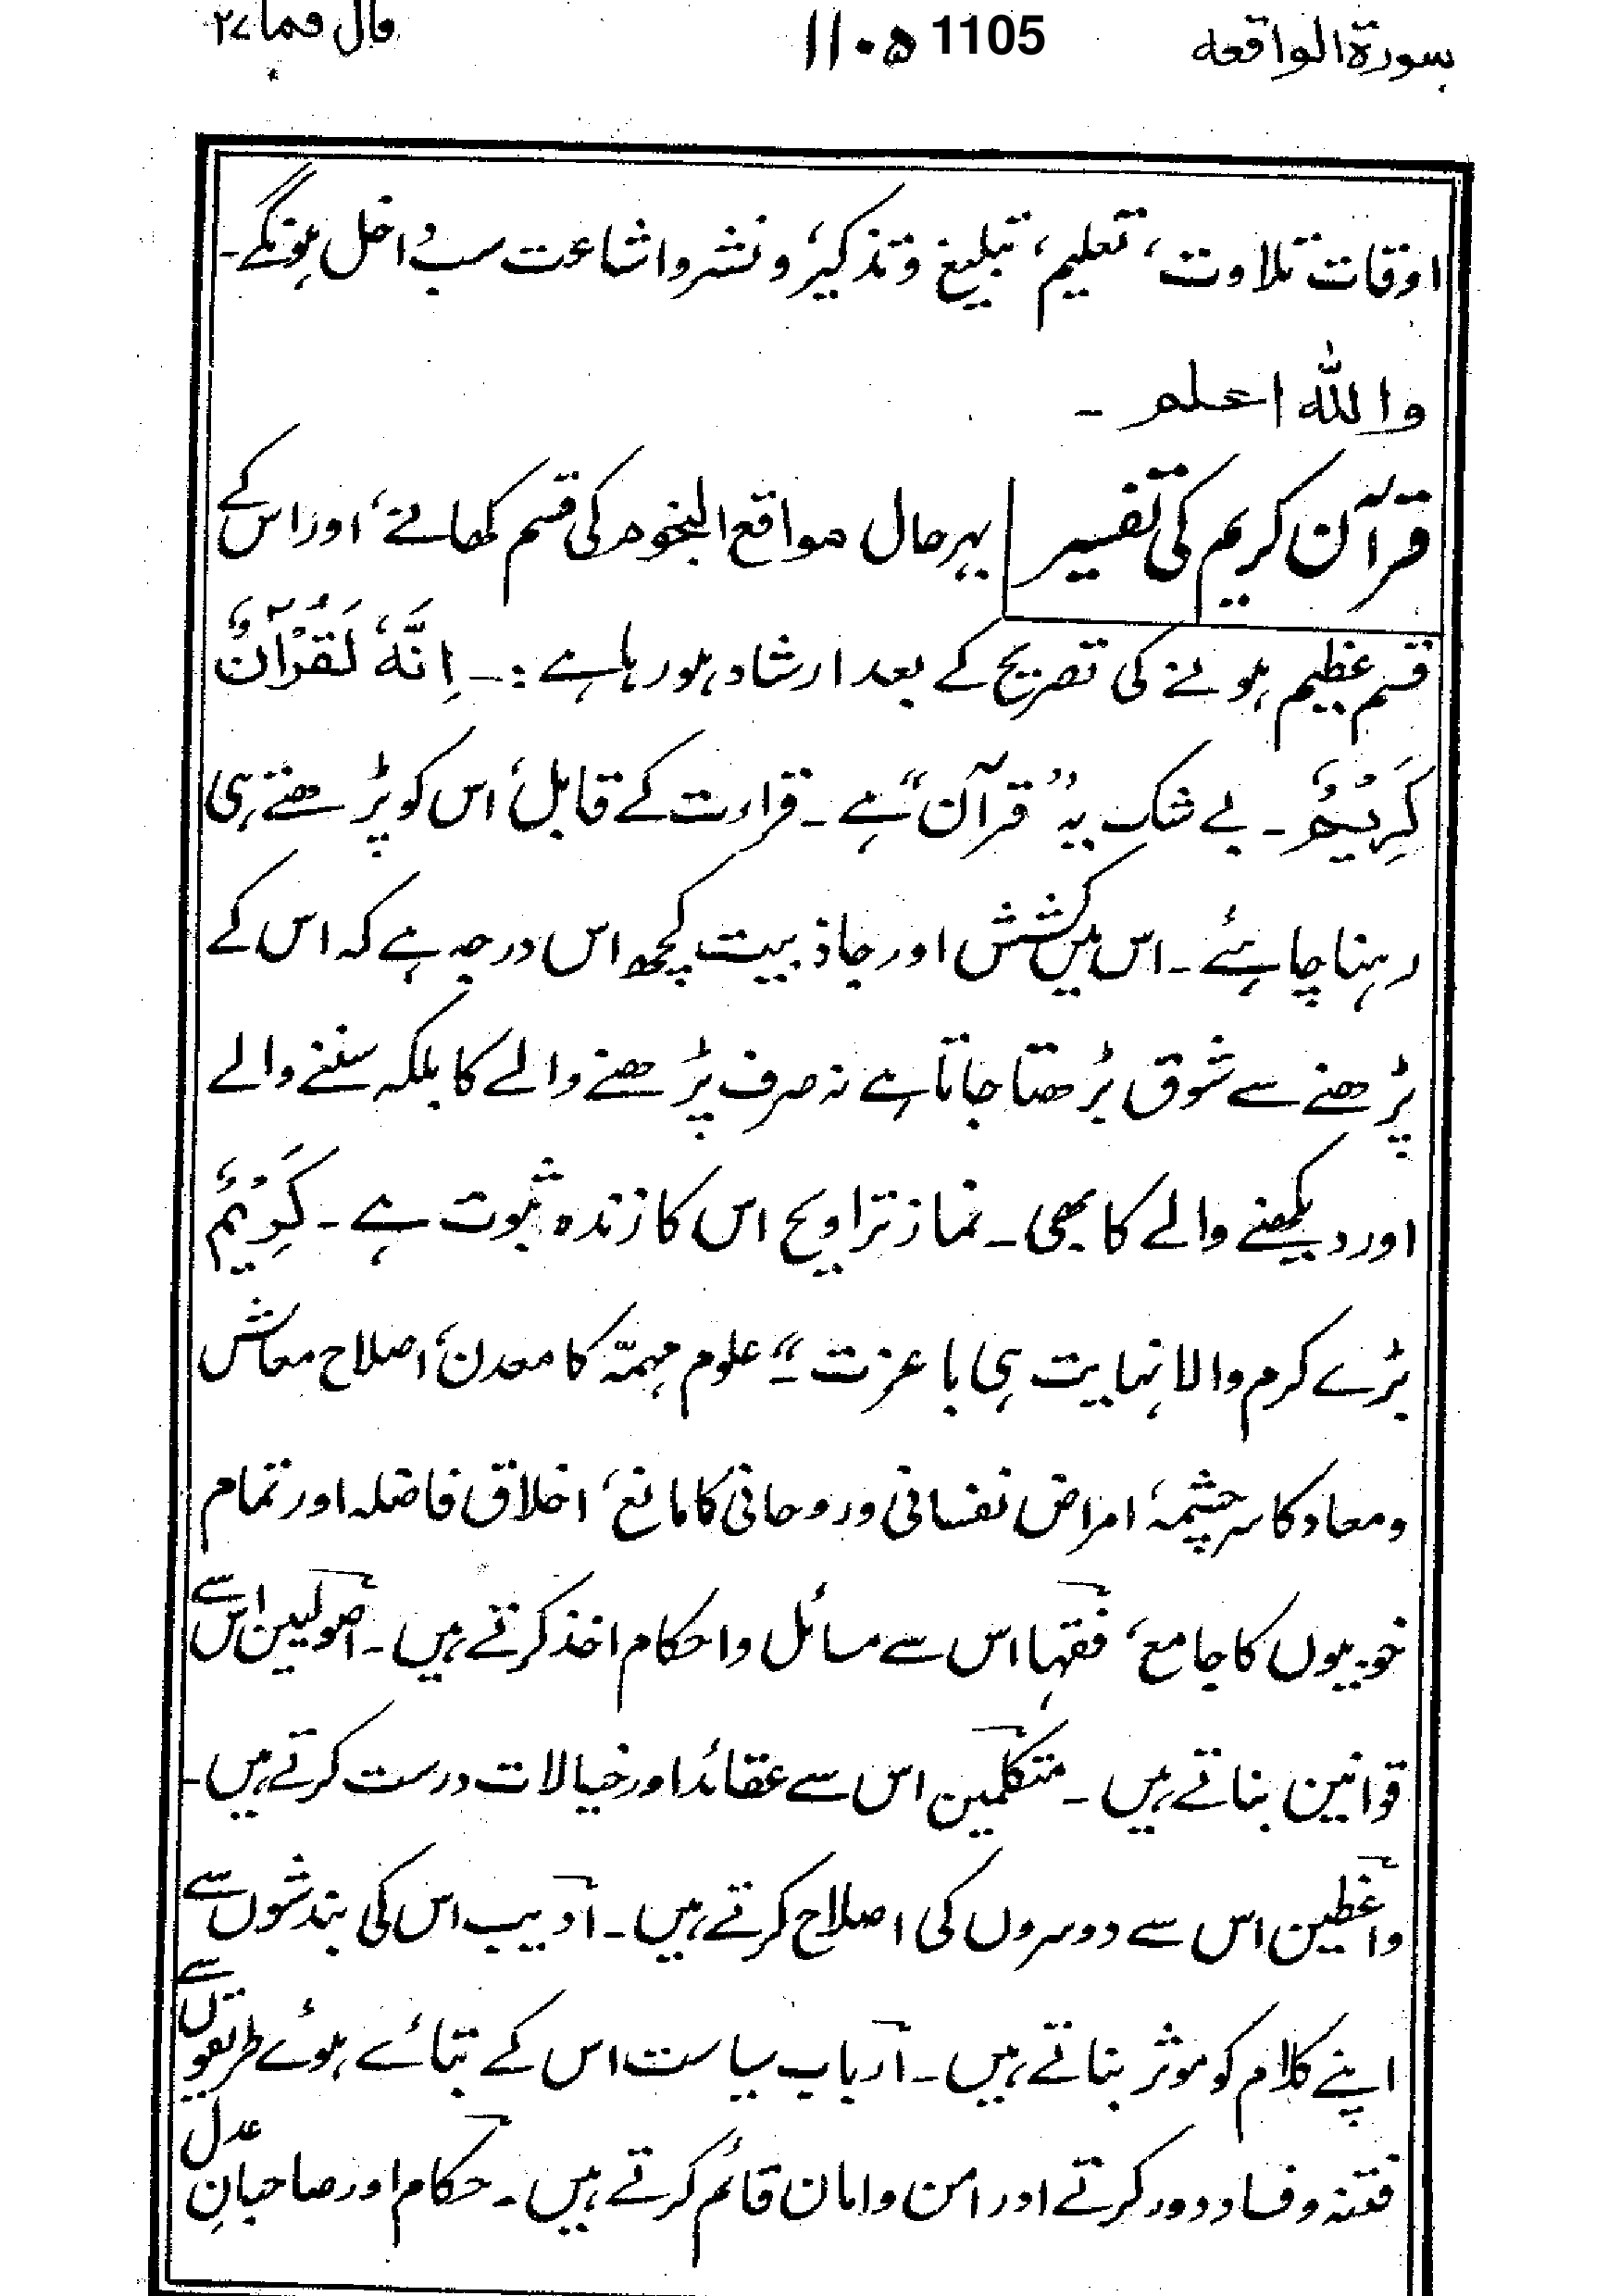 سورة الواقعه ۱۱۰۵ 1105 قال فما ۲۷
اوقات تلاوت، تعلیم، تبلیغ و تذکیر، و نشر و اشاعت سب داخل ہونگے۔
واللّٰہ اعلم ۔
قرآن کریم کی تفسیر بہرحال مواقع النجوم کی قسم کھانے، اور اس کے
قسم عظیم ہونے کی تصریح کے بعد ارشاد ہو رہا ہے :۔ اِنَّهٗ لَقُرْاٰنٌ
كَرِيْمٌ ۔ بے شک یہ ”قرآن“ ہے ۔ قراءت کے قابل، اس کو پڑھتے ہی
رہنا چاہئے ۔ اس میں کشش اور جاذبیت کچھ اس درجہ ہے کہ اس کے
پڑھنے سے شوق بڑھتا جاتا ہے نہ صرف پڑھنے والے کا بلکہ سننے والے
اور دیکھنے والے کا بھی ۔ نماز تراویح اس کا زندہ ثبوت ہے ۔ كَرِيْمٌ
بڑے کرم والا نہایت ہی با عزت“۔ علوم مہمّہ کا معدن، اصلاح معاش
و معاد کا سرچشمہ، امراض نفسانی و روحانی کا مانع، اخلاق فاضلہ اور تمام
خوبیوں کا جامع، فقہا اس سے مسائل و احکام اخذ کرتے ہیں ۔ اصولیین اس سے
قوانین بناتے ہیں ۔ متکلمین اس سے عقائد اور خیالات درست کرتے ہیں ۔
واعظین اس سے دوسروں کی اصلاح کرتے ہیں ۔ ادیب اس کی بندشوں سے
اپنے کلام کو موثر بناتے ہیں ۔ ارباب سیاست اس کے بتائے ہوئے طریقوں سے
فتنہ و فساد دور کرتے اور امن و امان قائم کرتے ہیں ۔ حکام اور صاحبانِ عدل